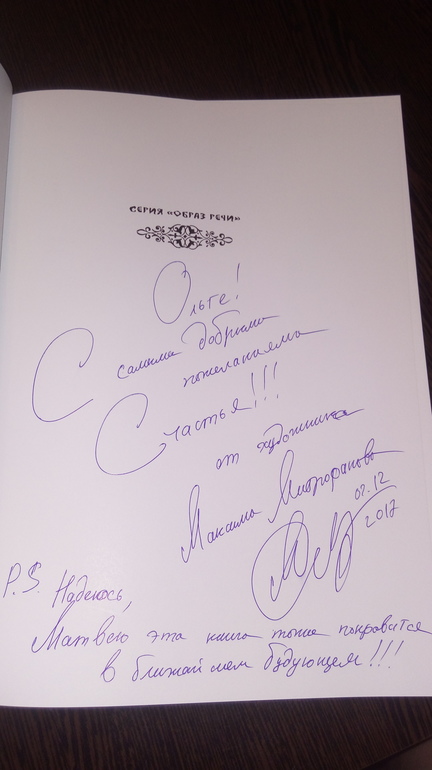 СЕРИЯ «ОБРАЗ РЕЧИ»
Ольге!
С самыми добрыми
пожеланиями
Счастья!!!
от художника
Максима Митрофанова
02.12
2017
P.S. Надеюсь,
Матвею эта книга тоже понравится
в ближайшем будующем!!!